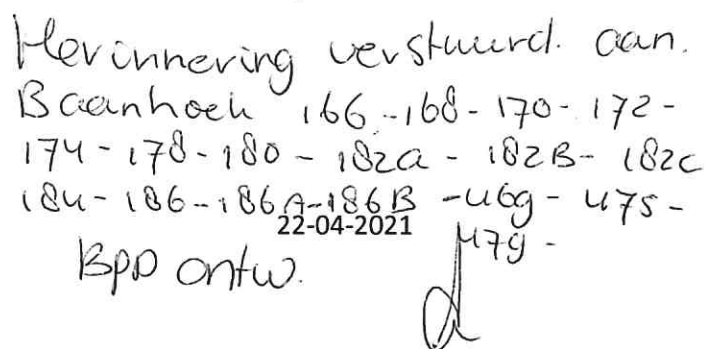 Herinnering verstuurd. aan.
Baanhoek 166 - 168 - 170 - 172 -
174 - 178 - 180 - 182a - 182B - 182c
184 - 186 - 186A - 186B - 469 - 475 -
22-04-2021
479 -
BPD ontw.